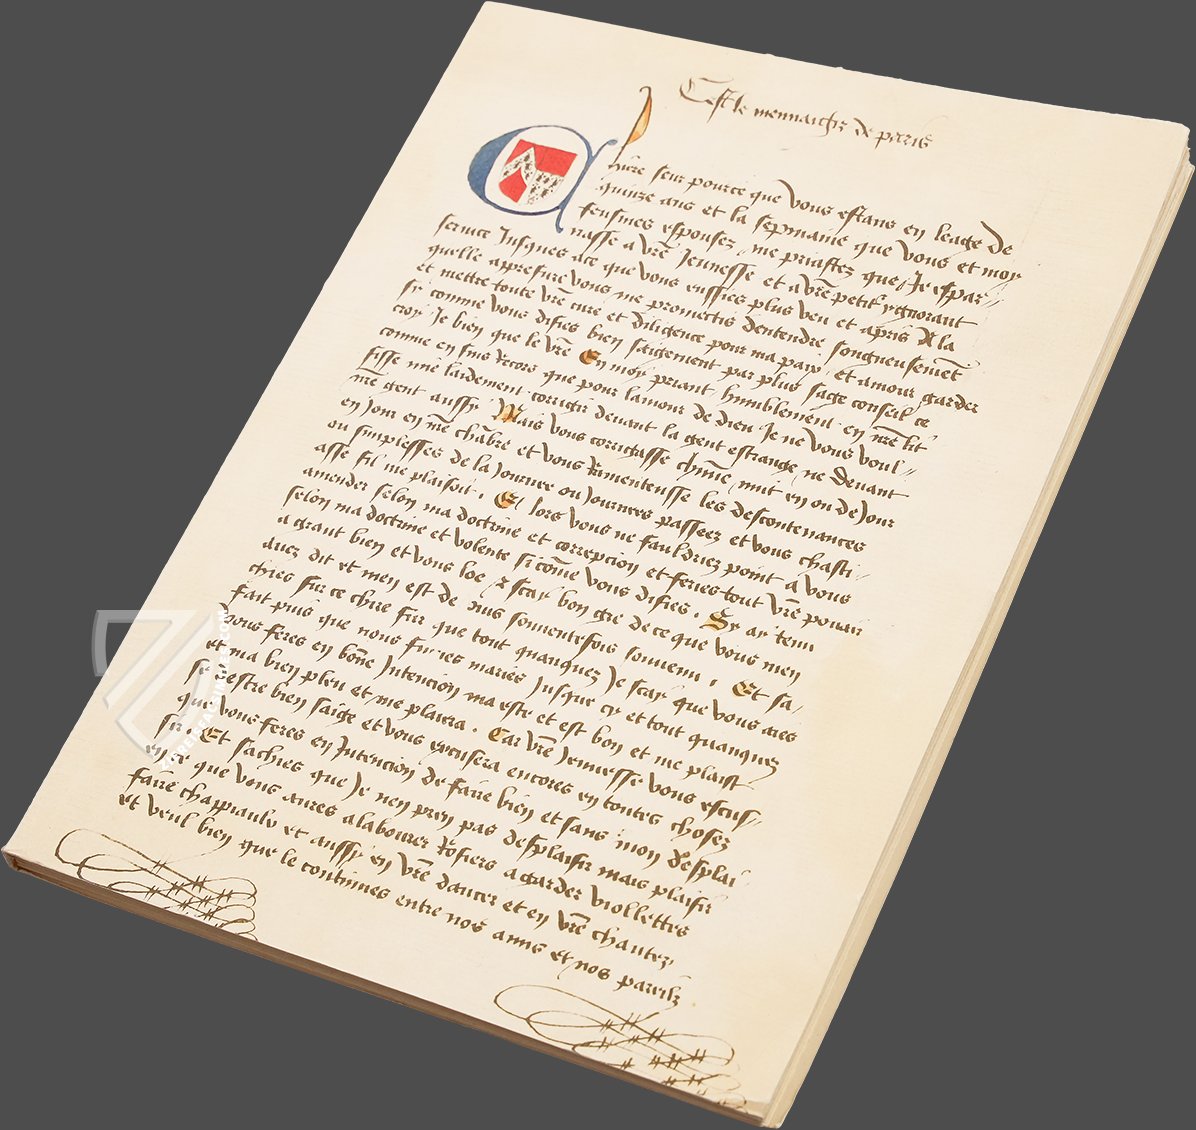 Cest le mennaichr de paris
Chiere seur pource que vous estans en leage de
quinze ans et la sepmaine que vous et moy
feusmes espousez me priastez que Je espar
nasse a vr̃e Jeunesse et a vr̃e petit ygnorant
seruice Jusques ace que vous eussies plus veu et apris A la
quelle appresure vous me promectis dentendre songneusemẽt
et mettre toute vr̃e cure et diligence pour ma paix et amour garder
sy comme vous disies bien saigement par plus sage conseil ce
croy Je bien que le vr̃e En moy priant humblement en nr̃e lit
comme en suis Recors que pour lamour de dieu Je ne vous voul
sisse mie laidement corrigir deuant la gent estrange ne deuant
nr̃e gent aussy Mais vous corrigasse chũne nuit en ou de Jour
en Jour en nr̃e chãbre et vous Ramenteusse les descontenances
ou simplesses de la Journee ou Journees passees et vous chasti
asse sil me plaisoit. Et lors vous ne fauldriez point a vous
amender selon ma doctrine et correpcion et feries tout vr̃e pouair
selon ma doctrine et volente si cõme vous disies. Sy ay tenu
a grant bien et vous loe et scay bon gre de ce que vous men
auez dit et men est de puis souuentesfois souuenu. Et sa
chies sur ce chire sur que tout quanquez Je scay que vous aies
fait puis que nous fumes maries Jusque cy et tout quanquez
vous feres en bõne Intencion ma este et est bon et me plaist
et ma bien pleu et me plaira. Car vr̃e Jeunesse vous escus
se destre bien saige et vous excusera encores en toutes chosez
que vous feres en Intencion de faire bien et sans mon desplai
sir. Et sachies que Je nen pren pas desplaisir mais plaisir
en ce que vous aures a labourer Rosiers a garder viollettes
faire chappiaulx et aussy en vr̃e dancer et en vr̃e chantez
et veul bien que le continues entre nos amis et nos pareilz
ZIEREREFACSIMILES.COM